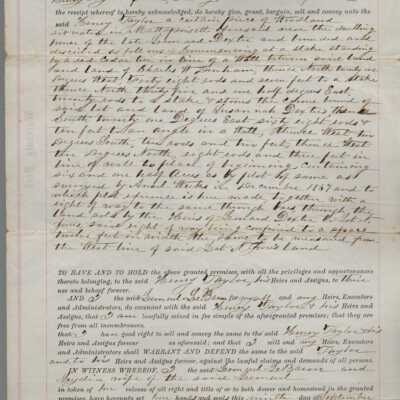 the receipt whereof is hereby acknowledged, do hereby give, grant, bargain, sell and convey unto the
said Henry Taylor a certain piece of Woodland
situated in Mattapoisett Euseped near the dwelling
house of the late Silas Dexter and bounded and
described as follows Commencing at a stake standing
by a red Cedar tree in line of a Wall between said land
and land of Charles W Dunham, thence North twenty six
degrees West Forty eight rods and seven feet to a Stake
thence North thirty five and one half degrees East
twenty rods to a stake & stones the corner bound of
said lot and land of Susannah Dexter thence
South twenty one Degrees East sixty eight rods &
ten feet to an angle in a Wall, thence West
Degrees South, two rods and two feet, thence West
ten degrees North eight rods and three feet in
line of wall to place of beginning containing
six and one half Acres as by plot of same as
surveyed by Ansel Weeks in December 1847 and to
which plot reference is here made, together with a
right of way to the same through bars through the
land sold by the Heirs of Leonard Dexter to
said right of way being confined to a space
twelve feet in width the same to be measured from
the West line of said land
TO HAVE AND TO HOLD the above granted premises, with all the privileges and appurtenances
thereto belonging, to the said Henry Taylor, his Heirs and Assigns, to their
use and behoof forever.
AND I the said Lemuel LeBaron for myself and my Heirs, Executors
and Administrators, do covenant with the said Henry Taylor & his Heirs and
Assigns, that I am lawfully seized in fee simple of the aforegranted premises; that they are
free from all incumbrances,
that I have good right to sell and convey the same to the said Henry Taylor his
Heirs and Assigns forever as aforesaid; and that I will and my Heirs, Executors
and Administrators shall WARRANT AND DEFEND the same to the said Taylor
and to his Heirs and Assigns forever, against the lawful claims and demands of all persons.
IN WITNESS WHEREOF, I the said Lemuel LeBaron and
Lydia wife of the said Lemuel
in token of her release of all right and title of or to both dower and homestead in the granted
premises have hereunto set our hands and seals this ninth day of September